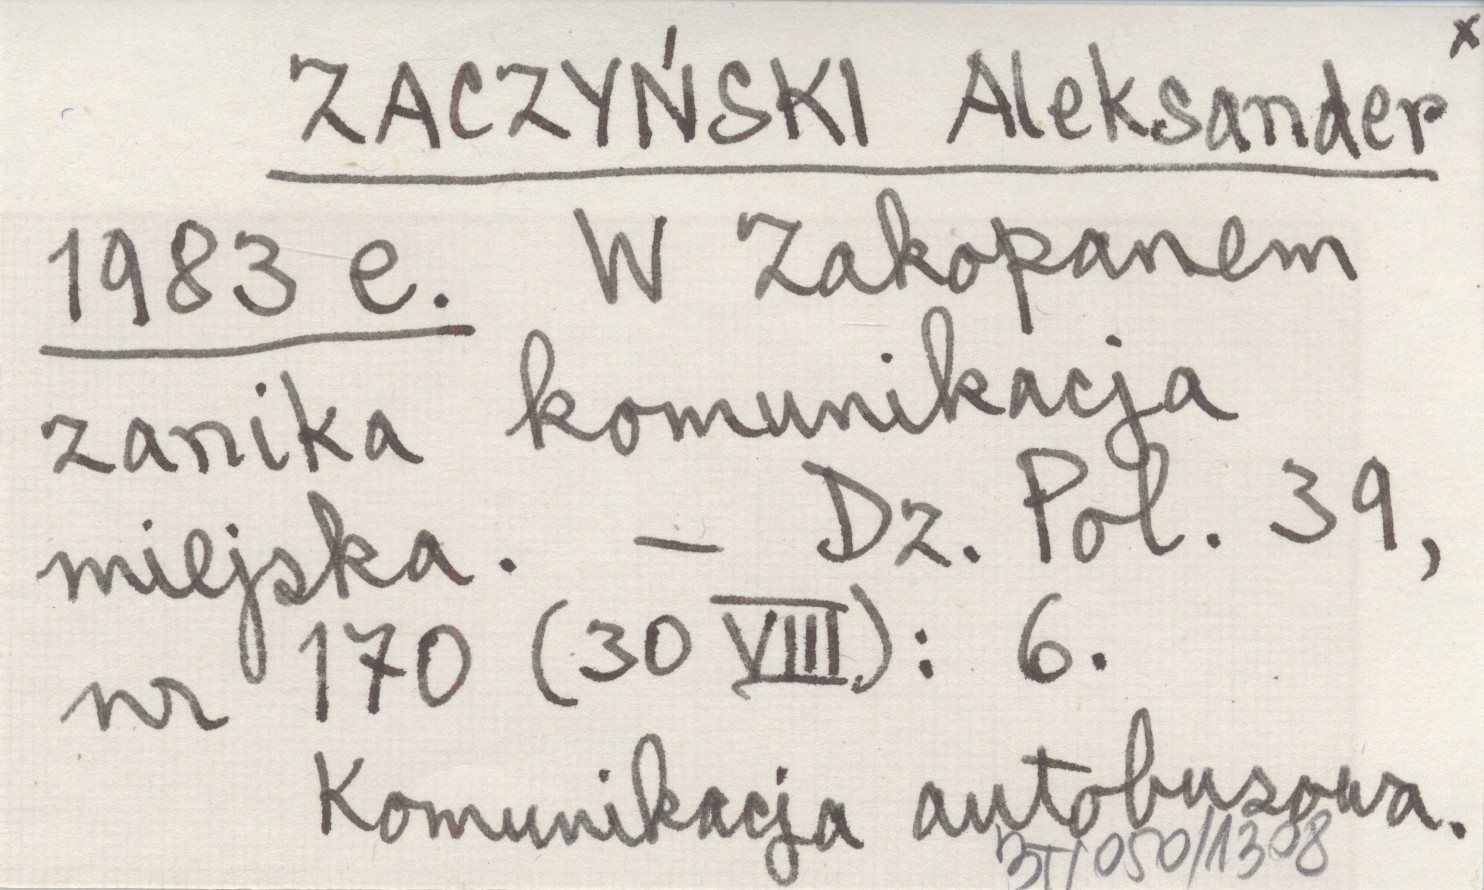 x
ZACZYŃSKI Aleksander
1983 e. W Zakopanem
zanika komunikacja
miejska. — Dz. Pol. 39,
nr 170 (30 VIII): 6.
Komunikacja autobusowa.
BT/050/1308